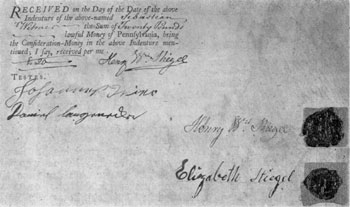 RECEIVED on the Day of the Day of the above
Indenture of the above-named Sebastian
the Sum of Twenty Pound
lawful Money of Pennsylvania, being
the Consideration-Money in the above Indenture men-
tioned; I say, received per me
Henry Wm Stiegel
TESTES,
Henry Wm Stiegel
Elizabeth Stiegel